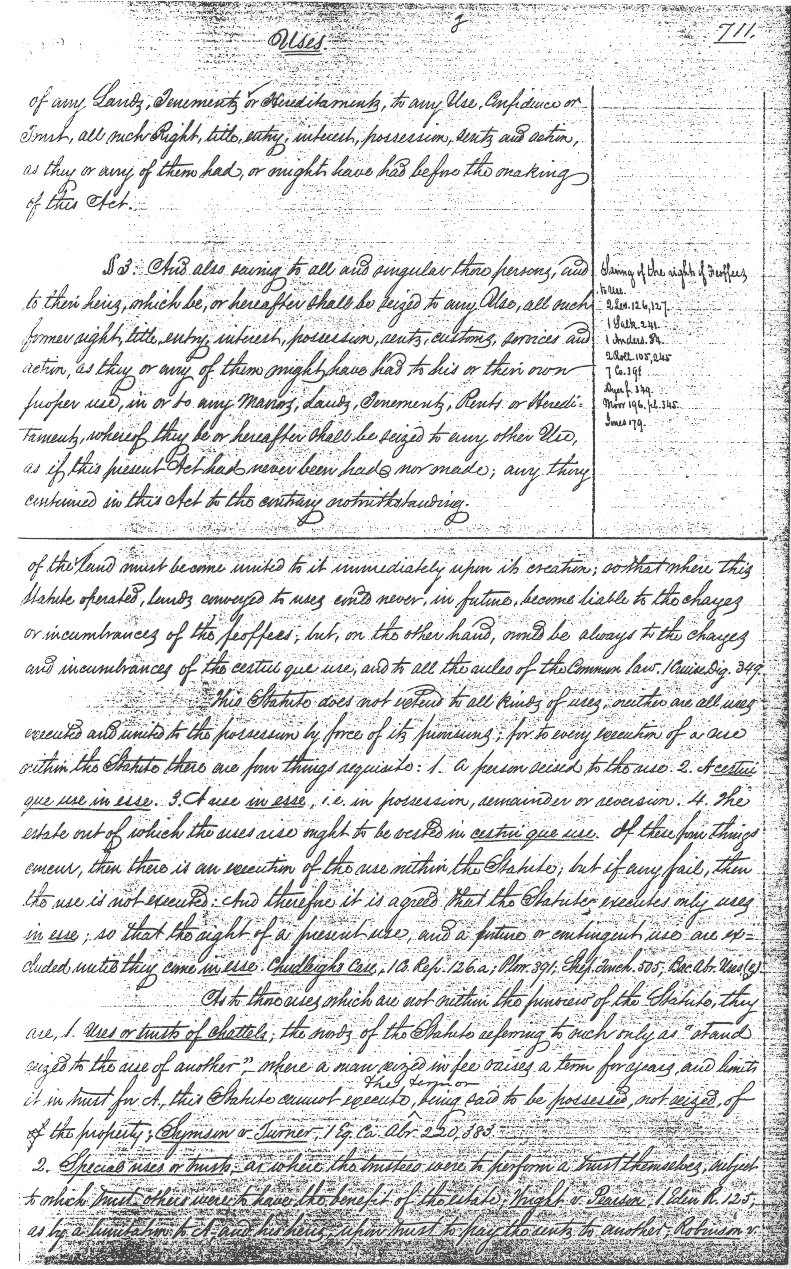 Uses
711.
of any Lands, Tenements or Hereditaments, to any Use, Confidence or
Trust, all such Right, title, entry, interest, possession, rents and action,
as they or any of them had, or might have had before the making
of this Act.
§3. And also saving to all and singular those persons, and
to their heirs, which be, or hereafter shall be seized to any Use, all such
former right, title, entry, interest, possession, rents, customs, services and
action, as they or any of them might have had to his or their own
proper use, in or to any Manors, Lands, Tenements, Rents or Heredi-
taments, whereof they be or hereafter shall be seized to any other Use,
as if this present Act had never been had nor made; any thing
contained in this Act to the contrary notwithstanding.
Saving of the right of Feoffees
to use.
2 Lev. 126, 127
1 Salk. 241.
1 Anders. 84.
2 Roll. 105, 245
7 Co. 39
Dyer f. 349.
Moor 196. pl. 345.
Jones 179.
of the land must become united to it immediately upon its creation; so that where this
Statute operated, lands conveyed to uses could never, in future, become liable to the charges
or incumbrances of the feoffees; but, on the other hand, would be always to the charges
and incumbrances of the cestui que use, and to all the rules of the Common law. 1 Cruise Dig. 349.
This Statute does not extend to all kinds of uses, neither are all uses
executed and united to the possession by force of its provisions; for to every execution of a use
within the Statute there are four things requisite: 1. A person seised to the use. 2. A cestui
que use in esse. 3. A use in esse, i.e. in possession, remainder or reversion. 4. The
estate out of which the uses rise ought to be vested in cestui que use. If these four things
concur, then there is an execution of the use within the Statute; but if any fail, then
the use is not executed: And therefore it is agreed that the Statute executes only uses
in esse; so that the right of a present use, and a future or contingent use are ex=
cluded until they come in esse. Chudleigh's Case, 1 Co. Rep. 126.a; Plow. 391, Shep. Touch. 505, Bac. Abr. Uses
As to those uses which are not within the purview of the Statute, they
are, 1. Uses or trusts of chattels; the words of the Statute referring to such only as "stand
seized to the use of another", where a man seized in fee raises a term for years, and limits
it in trust for A, this Statute cannot execute, the termor being said to be possessed, not seized, of
of the property; Symson v. Turner, 1 Eq. Ca. Abr. 220, 383.
2. Special uses or trusts, as where the trustees were to perform a trust themselves, subject
to which trust others were to have the benefit of the estate, Wright v. Pearson, 1 Eden R. 125;
as by a limitation to A. and his heirs, upon trust to pay the rents to another; Robinson v.